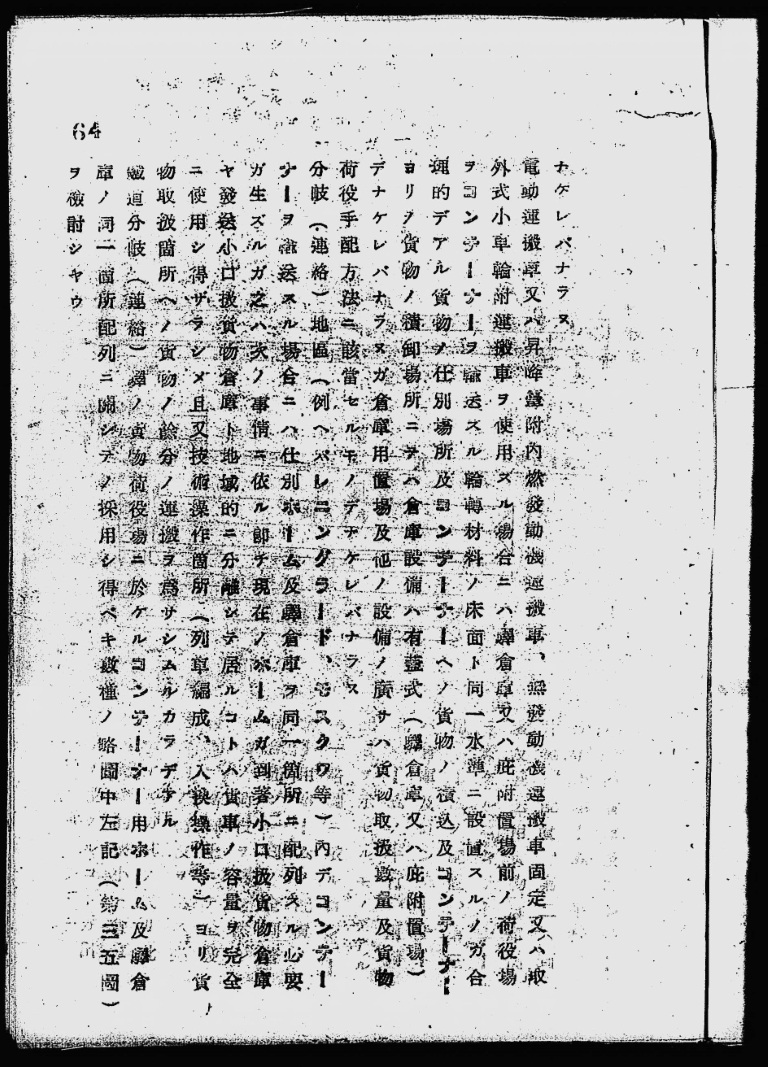 64
ナケレバナラヌ
電動運搬車又ハ昇降臺附內燃發動機運搬車、無發動機運搬車固定又ハ取
外式小車輪附運搬車ヲ使用スル場合ニハ驛倉庫又ハ庇附置場前ノ荷役場
ヲコンテーナーヲ輸送スル輪轉材料ノ床面ト同一水準ニ設置スルノガ合
理的デアル貨物ノ仕別場所及コンテーナーヘノ貨物ノ積込及コンテーナー
ヨリノ貨物ノ積卸場所ニテハ倉庫設備ハ有蓋式（驛倉庫又ハ庇附置場）
デナケレバナラヌガ倉庫用置場及他ノ設備ノ廣サハ貨物取扱數量及貨物
荷役手配方法ニ該當セルモノデナケレバナラヌ
分岐（連絡）地區（例ヘバレニングラード、モスクワ等）內デコンテー
ナーヲ輸送スル場合ニハ仕別ホーム及驛倉庫ヲ同一箇所ニ配列スル必要
ガ生ズルガ之ハ次ノ事情ニ依ル卽チ現在ノホームガ到著小口扱貨物倉庫
ヤ發送小口扱貨物倉庫ト地域的ニ分離シテ居ルコトハ貨車ノ容量ヲ完全
ニ使用シ得ザラシメ且又技術操作箇所（列車編成、入換操作等）ヨリ貨
物取扱箇所ヘノ貨物ノ餘分ノ運搬ヲ爲サシムルカラデアル
鐵道分岐（連絡）驛ノ貨物荷役場ニ於ケルコンテーナー用ホーム及驛倉
庫ノ同一箇所配列ニ關シテノ採用シ得ベキ數種ノ略圖中左記（第三五圖）
ヲ檢討シヤウ